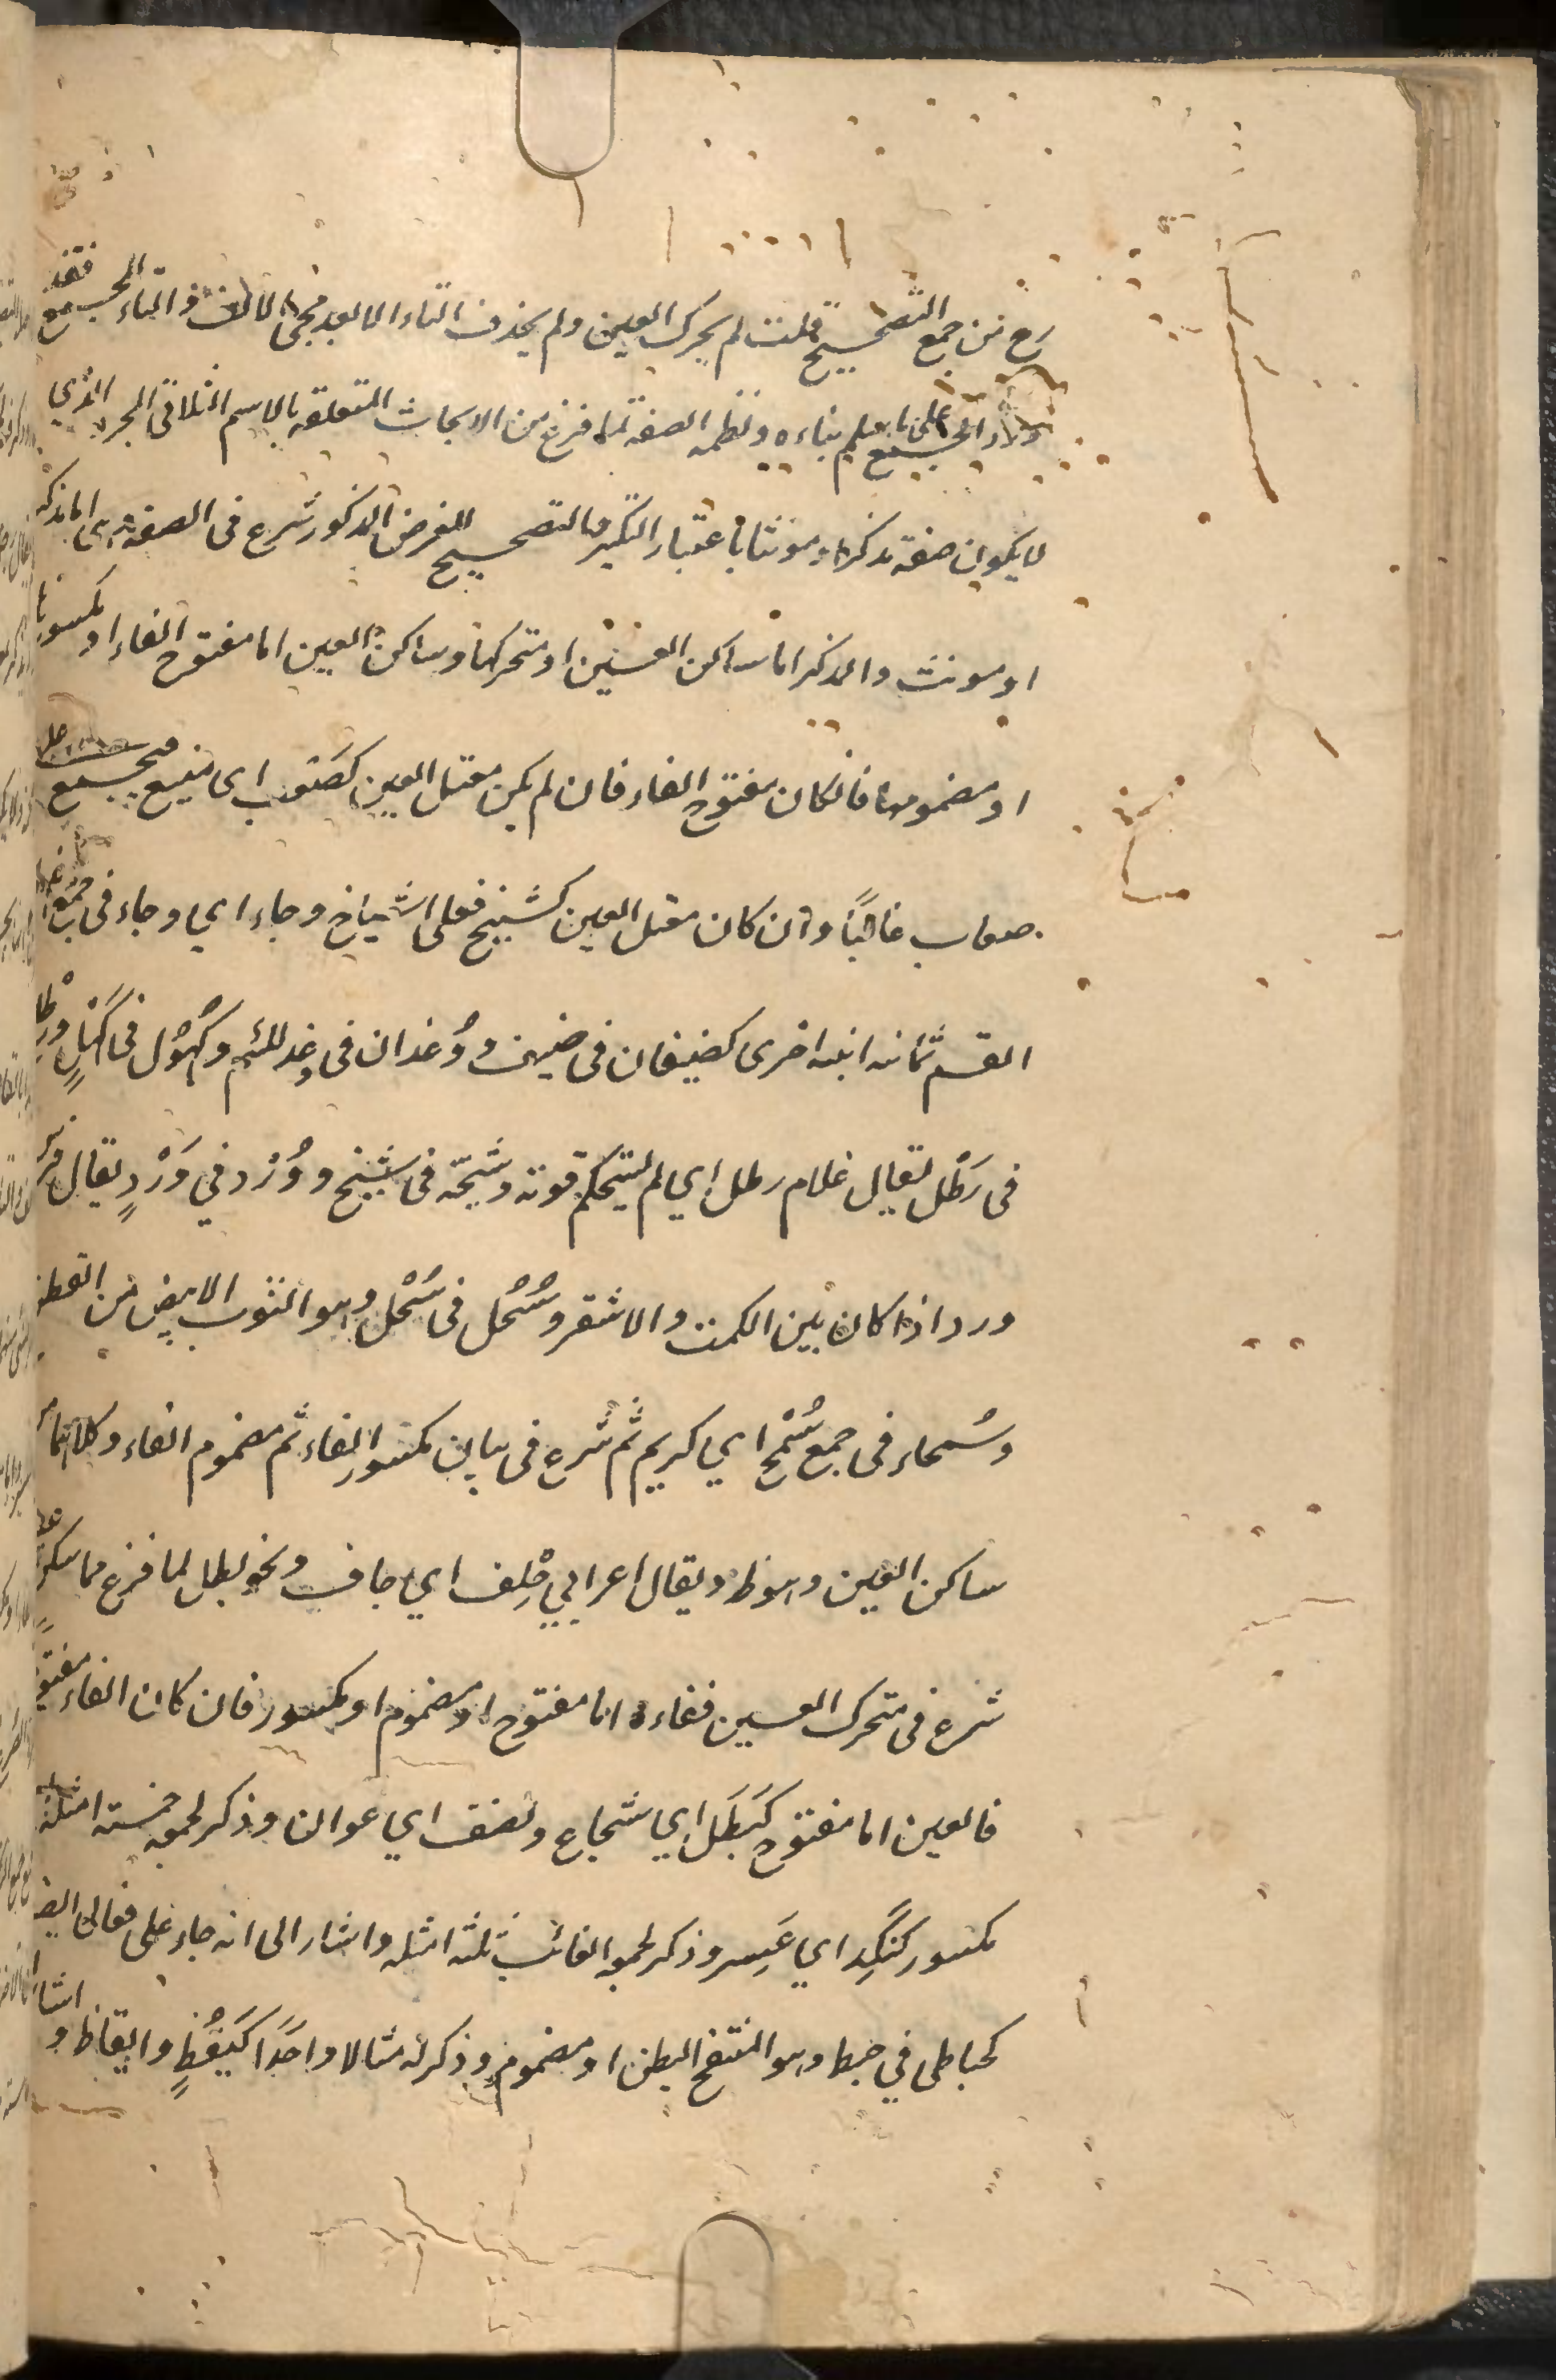 من جمع التصحيح قلت لم يحرك العين ولم يحذف التاء الا لبعد مجئ الالف والتاء الجمع فقد
الجمع على ما يعلم بناءه ونظمه الصفة لما فرغ من الابحاث المتعلقه بالاسم الثلاثى المجرد الذي
لا يكون صفة مذكرا ومونثا باعتبار التكسير والتصحيح للغرض المذكور شرع فى الصفة وهى اما مذكر
او مونث والمذكر اما ساكن العين او متحركها وساكن العين اما مفتوح الفاء او مكسورها
او مضمومها فان كان مفتوح الفاء فان لم يكن معتل العين كصَعْب اى منيع فجمع على
صعاب غالبًا وان كان معتل العين كشيخ فعلى اشياخ وجاء اي وجاء فى جمع
القسم ثمانية ابنية اخرى كضيفان فى ضيف و وُغدان فى وغد للئيم وكُهُول فى كَهْلٍ ورِطَلة
فى رَطْل يقال غلام رطل اي لم يستحكم قوته وشِيخه فى شيخ و وُرْد في وَرْدٍ يقال فرس
ورد اذا كان بين الكمت والاشقر وسُحُل فى سَحْل وهو الثوب الابيض من القطن
وسُمحاء فى جمع سَمْح اي كريم ثم شرع فى بيان مكسور الفاء ثم مضموم الفاء وكلاهما
ساكن العين وهو ظ ويقال اعرابي جِلْف اي جاف ونحو بطل لما فرغ مما سكن عينه
شرع فى متحرك العين ففاءه اما مفتوح او مضموم او مكسور فان كان الفاء مفتوحا
فالعين اما مفتوح كبَطَل اي شجاع ونصف اي عوان وذكر لجمعه خمسة امثلة
مكسور كنَكِد اي عَسِر وذكر لجمعه الغائب ثلثة امثله واشار الى انه جاء على فعالى ايضا
كحباطى في حبط وهو المنتفخ البطن او مضموم وذكر له مثالا واحدًا كيَقُظٍ وايقاظ و اشار